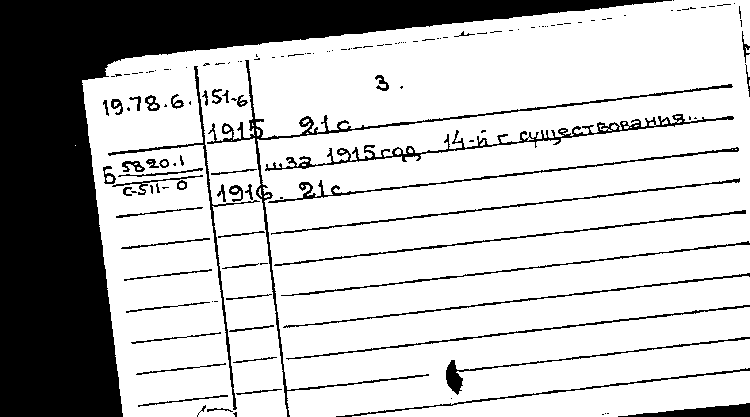 3.
19.78.6. 151-6
1915. 21 с.
...за 1915 год. 14-й г. существования...
Б 5820.1
С-511-0
1916. 21 с.